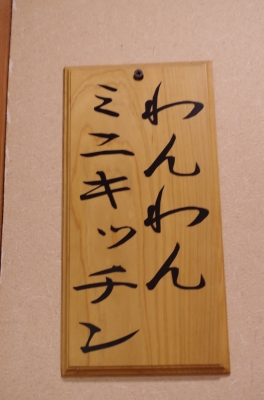 わんわん
ミニキッチン